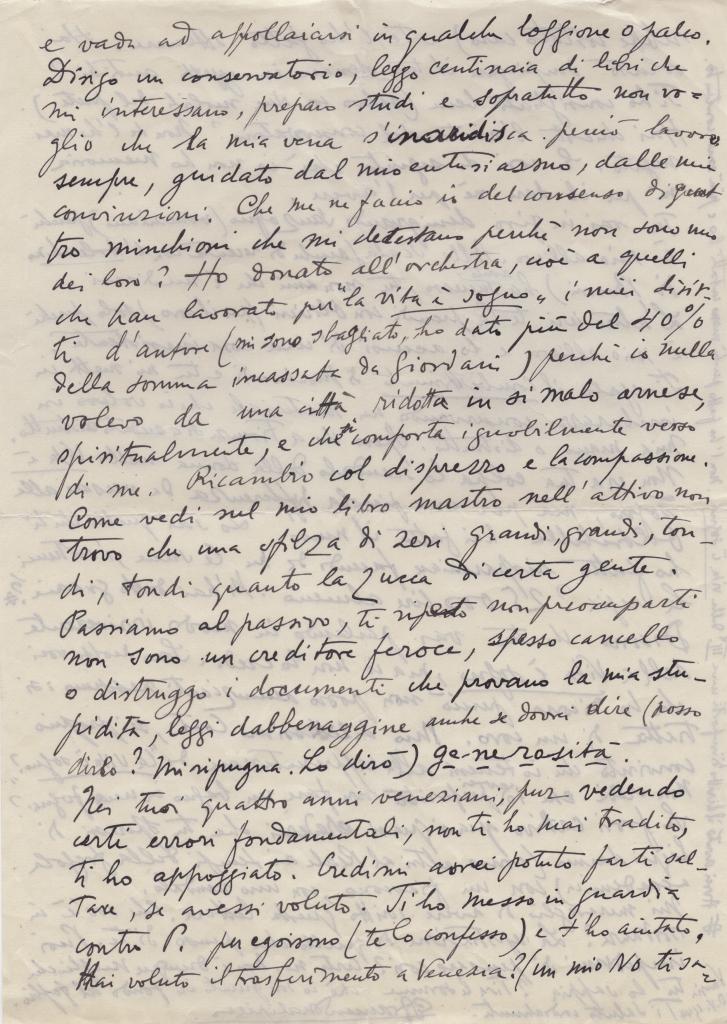 e vada ad appollaiarsi in qualche loggione o palco.
Dirigo un conservatorio, leggo centinaia di libri che
mi interessano, preparo studi e sopratutto non vo=
glio che la mia vena s'inaridisca. perciò lavoro
sempre, guidato dal mio entusiasmo, dalle mie
convinzioni. Che me ne faccio io del consenso di quat
tro minchioni che mi detestano perché non sono uno
dei loro? Ho donato all'orchestra, cioè a quelli
che han lavorato per "la vita è sogno" i miei dirit-
ti d'autore (mi sono sbagliato, ho dato più del 40%
della somma incassata da Giordani) perché io nulla
volevo da una città ridotta in sì malo arnese,
spiritualmente, e che si comporta ignobilmente verso
di me. Ricambio col disprezzo e la compassione.
Come vedi nel mio libro mastro nell'attivo non
trovo che una sfilza di zeri grandi, grandi, ton-
di, tondi quanto la zucca di certa gente.
Passiamo al passivo, ti ripeto non preoccuparti
non sono un creditore feroce, spesso cancello
o distruggo i documenti che provano la mia stu-
pidità, leggi dabbenaggine anche se dovrei dire (posso
dirlo? Mi ripugna. Lo dirò) ge-ne-ro-si-tà.
Nei tuoi quattro anni veneziani, pur vedendo
certi errori fondamentali, non ti ho mai tradito,
ti ho appoggiato. Credimi avrei potuto farti sal-
tare, se avessi voluto. Ti ho messo in guardia
contro P. per egoismo (te lo confesso) e t'ho aiutato.
Hai voluto il trasferimento a Venezia? (un mio No ti sa=